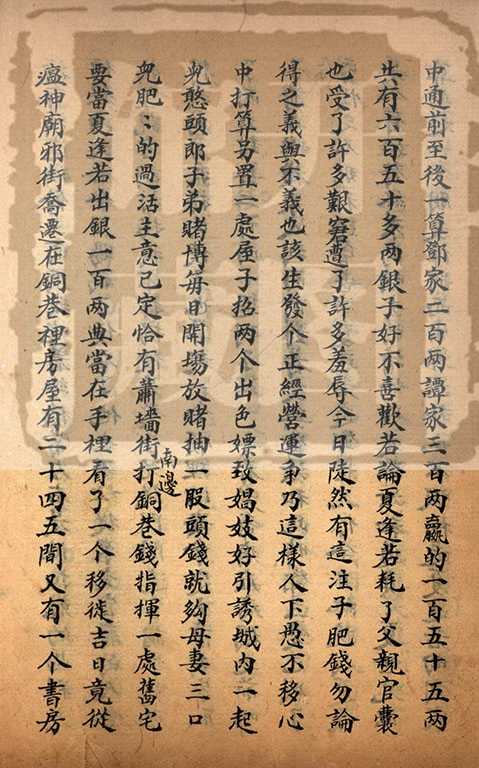 中通前至後一算鄧家二百两譚家三百两贏的一百五十五两
共有六百五十多两銀子好不喜歡若論夏逢若耗了父親官囊
也受了許多艱窘遭了許多羞辱今日陡然有這注子肥錢勿論
得之義與不義也該生發个正經營運爭乃這樣人下愚不移心
中打算另置一處屋子招两个出色嫖致娼妓好引誘城内一起
兇憨頭郎子弟賭博毎日開塲放賭抽一股頭錢就夠母妻三口
兇肥:的過活主意已定恰有蕭墻街南邊打銅巷錢指揮一處舊宅
要當夏逢若出銀一百两典當在手裡看了一个移徙吉日竟從
瘟神廟邪街喬遷在銅巷裡房屋有二十四五間又有一个書房